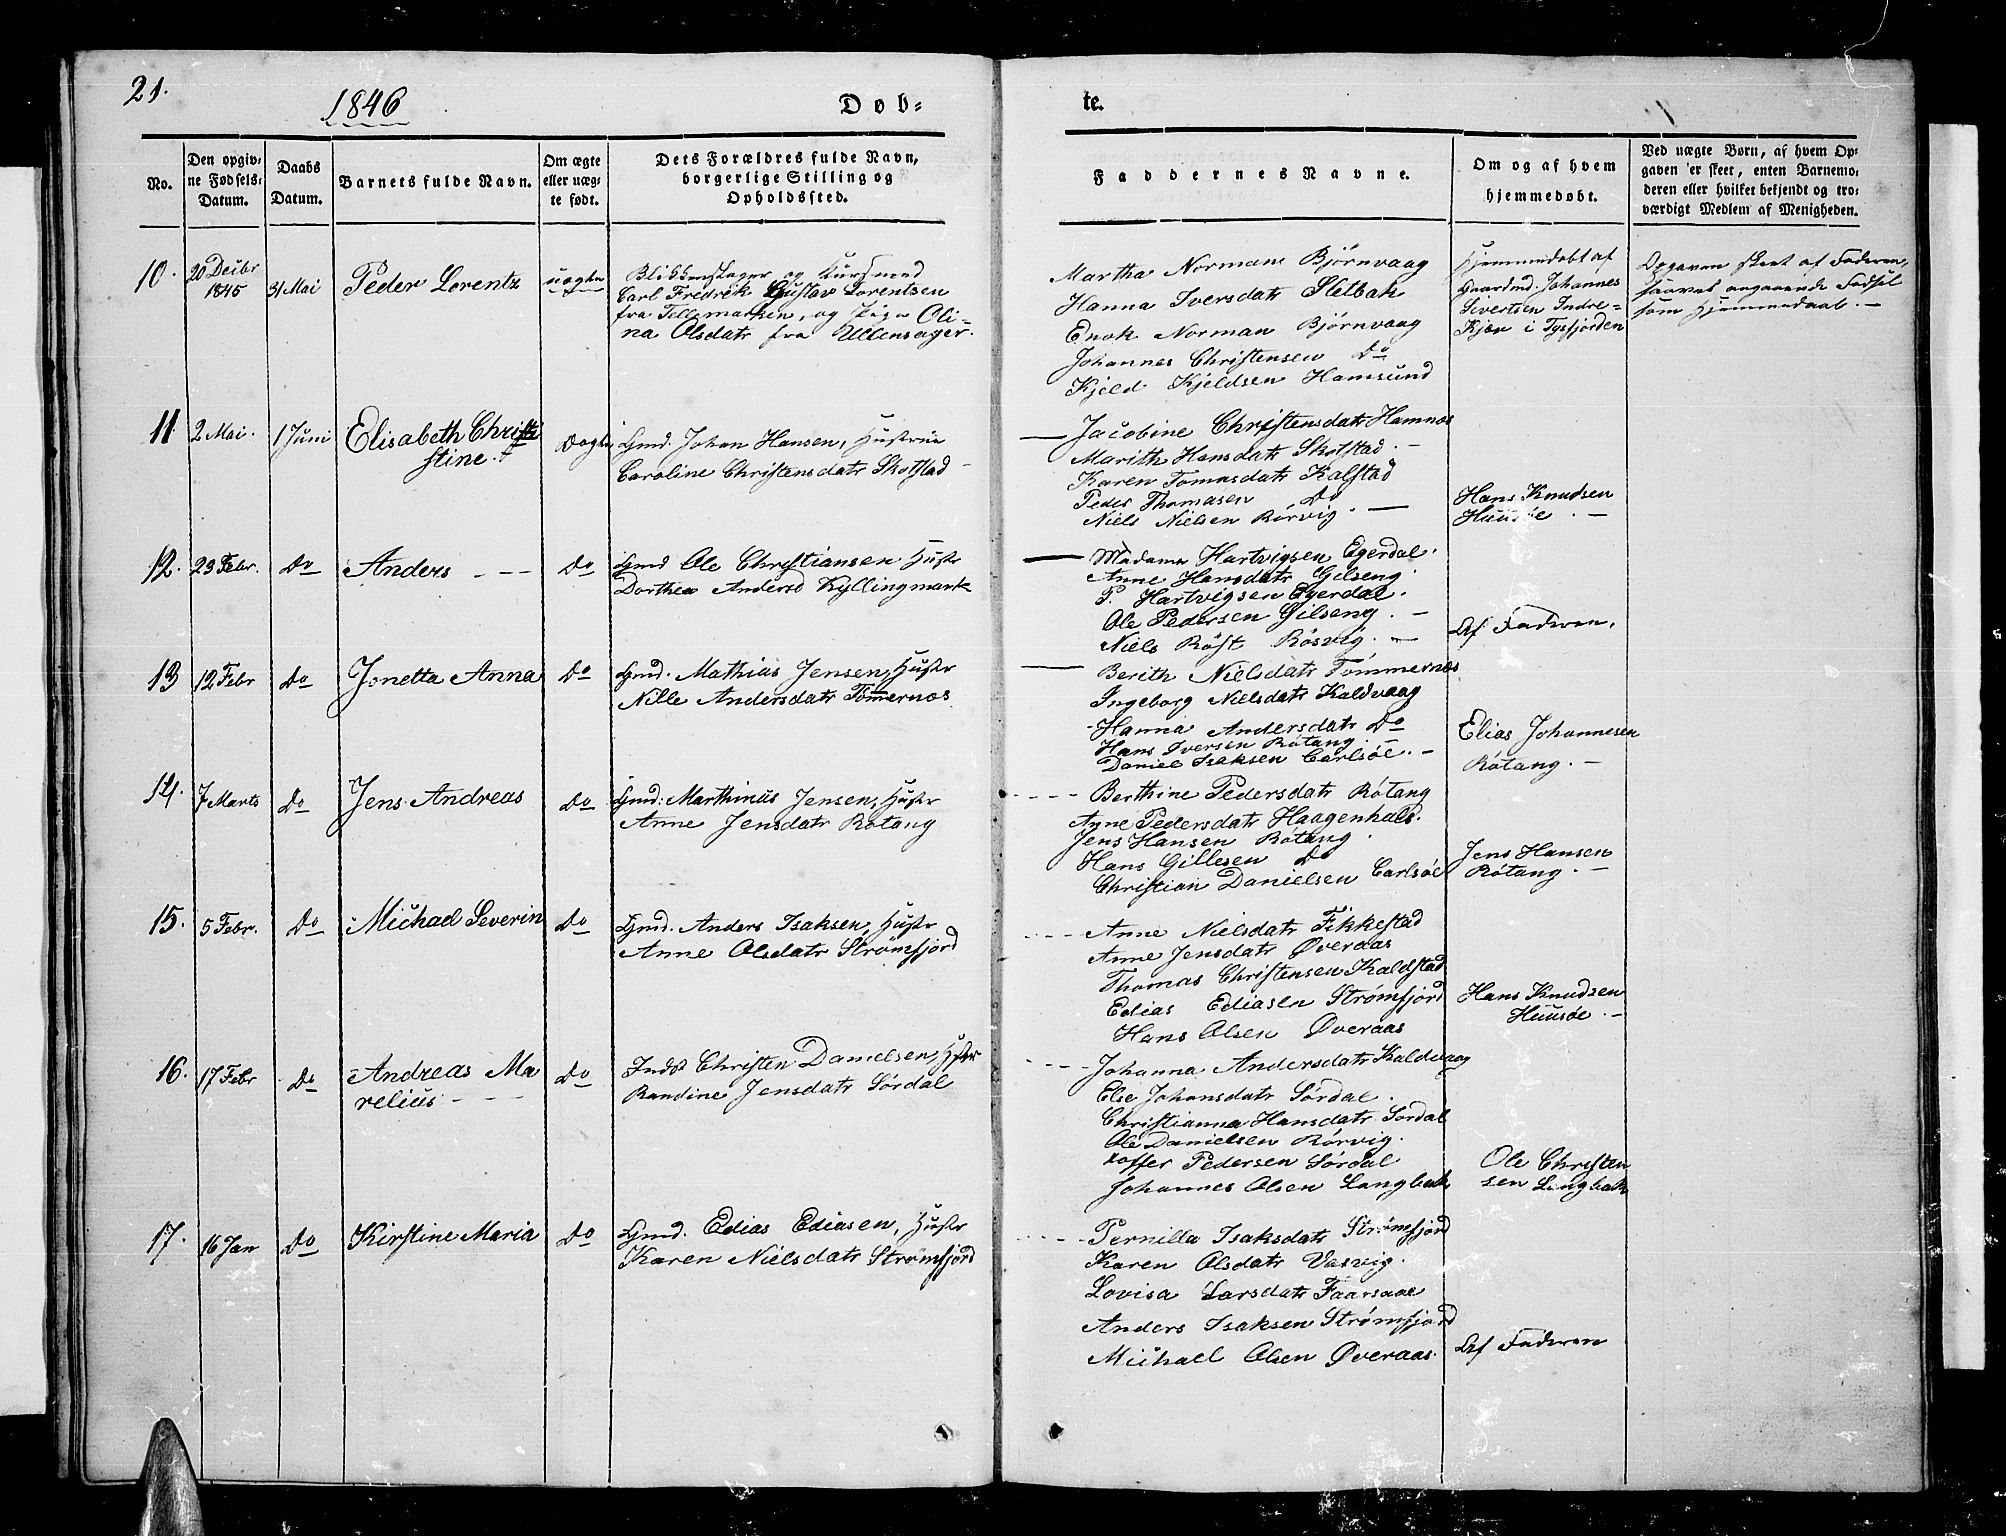 21.
1846
Døb-
te.
No.
Den opgiv-
ne Fødsels-
Datum.
Daabs
Datum.
Barnets fulde Navn.
Om ægte
eller uæg-
te født.
Dets Forældres fulde Navn,
borgerlige Stilling og
Opholdssted.
Faddernes Navne.
Om og af hvem
hjemmedøbt.
Ved uægte Børn, af hvem Op-
gaven er skeet, enten Barnemo-
deren eller hvilket bekjendt og tro-
værdigt Medlem af Menigheden.
10.
20 Decbr
1845
31 Mai
Peder Lorentz
uægte
Blikkenslager og
Carl Fredrek Gustav Lorentsen
fra Tellemarken, og Pige Oli-
na Olsdatr fra Ullensager.
Martha Norman Bjørnvaag
Hanna Iversdatr Sletbak
Enok Norman Bjørnvaag
Johannes Christensen Do
Kjeld Kjeldsen Hamsund
Hjemmedøbt af
Gaardmd. Johannes
Sivertsen Indre-
Kjær i Tysfjorden
Opgaven skeet af Faderen,
saavel angaaende Fødsel
som Hjemmedaab. —
11
2 Mai.
1 Juni
Elisabeth Chri
stine.
ægte
Gmd. Johan Hansen, Hustrue
Caroline Christensdatr Skotstad
— Jacobine Christensdatr Hamnæs
Marith Hansdatr Skotstad. —
Karen Tomasdatr Kalstad
Peder Thomasen Do
Niels Nielsen Rørvig. —
Hans Knudsen
Huusøe. —
12.
23 Febr.
Do
Anders — —
Do
Gmd Ole Christiansen Hustr
Dorthea Andersd Kyllingmark
— Madame Hartvigsen Egerdal.
Anne Hansdatr Gilseng.
P. Hartvigsen Egerdal.
Ole Pedersen Gilseng. —
Niels Røst Røsvig. —
Af Faderen.
13
12 Febr
Do
Jonetta Anna
Do
Gmd. Mathias Jensen, Hustr
Nille Andersdatr Tømmernæs
— Berith Nielsdatr Tømmernæs
Ingeborg Nielsdatr Kaldvaag
Hanna Andersdatr Do
Hans Iversen Røtang
Daniel Isaksen Carlsøe. —
Elias Johannesen
Røtang. —
14.
7 Marts
Do
Jens Andreas
Do
Gmd: Marthinus Jensen, Hustr
Anne Jensdatr Røtang
— Berthine Pedersdatr Røtang
Anne Pedersdatr Haagenhals.
Jens Hansen Røtang.
Hans Gillesen Do
Christian Danielsen Carlsøe
Jens Hansen
Røtang. —
15.
5 Febr.
Do
Michael Severin
Do
Gmd. Anders Isaksen, Hustr
Anne Olsdatr Strømfjord
— Anne Nielsdatr Fikkestad
Anne Jensdatr Øveraas
Thomas Christensen Kaldstad
Edias Ediasen Strømfjord
Hans Olsen Øveraas
Hans Knudsen
Huusøe. —
16.
17 Febr
Do
Andreas Ma
relius — —
Do
Indst Christen Danielsen, Hstr
Randine Jensdatr Sørdal
— Johanna Andersdatr Kaldvaag
Else Johansdatr Sørdal.
Christianna Hansdatr Sørdal
Ole Danielsen Rørvig.
Koffer Pedersen Sørdal
Johannes Olsen Langbak
Ole Christen
sen Langbak
17.
16 Jan
Do
Kirstine Maria
Do
Gmd. Edias Ediasen, Hustr
Karen Nielsdatr Strømfjord
— Pernilla Isaksdatr Strømfjord
Karen Olsdatr Vasvig.
Lovisa Larsdatr
Anders Isaksen Strømfjord
Michael Olsen Øveraas.
Af Faderen